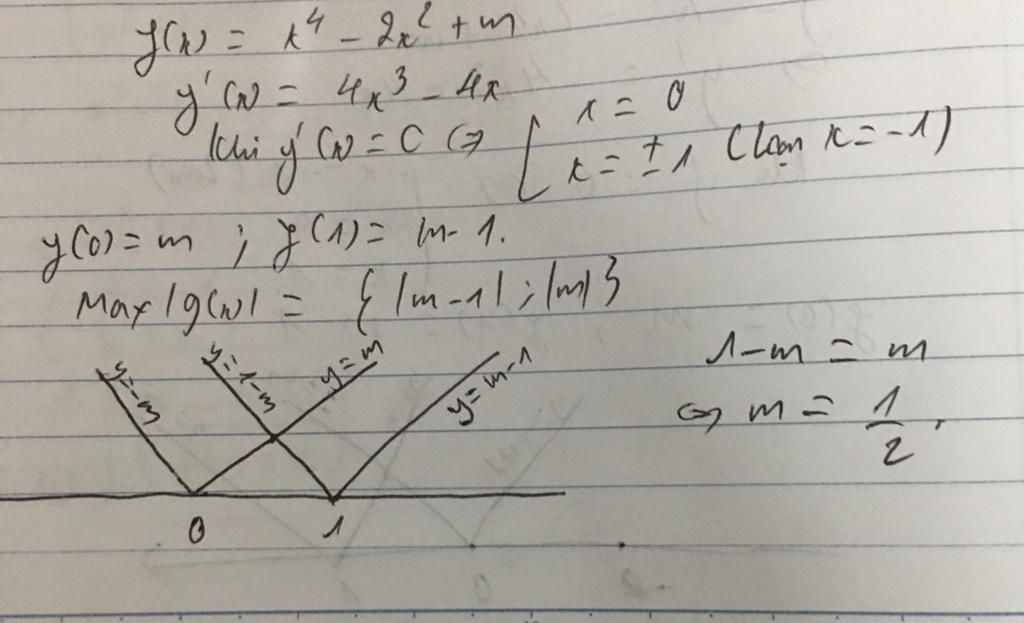 y(x) = x⁴ - 2x² + m
y'(x) = 4x³ - 4x
Khi y'(x) = 0 ⇔ [ x = 0
x = ±1 (loại x = -1)
y(0) = m ; y(1) = m - 1.
Max |g(x)| = { |m - 1| ; |m| }
y = -m y = 1 - m y = m y = m - 1
1 - m = m
⇔ m = 1/2 .
0 1